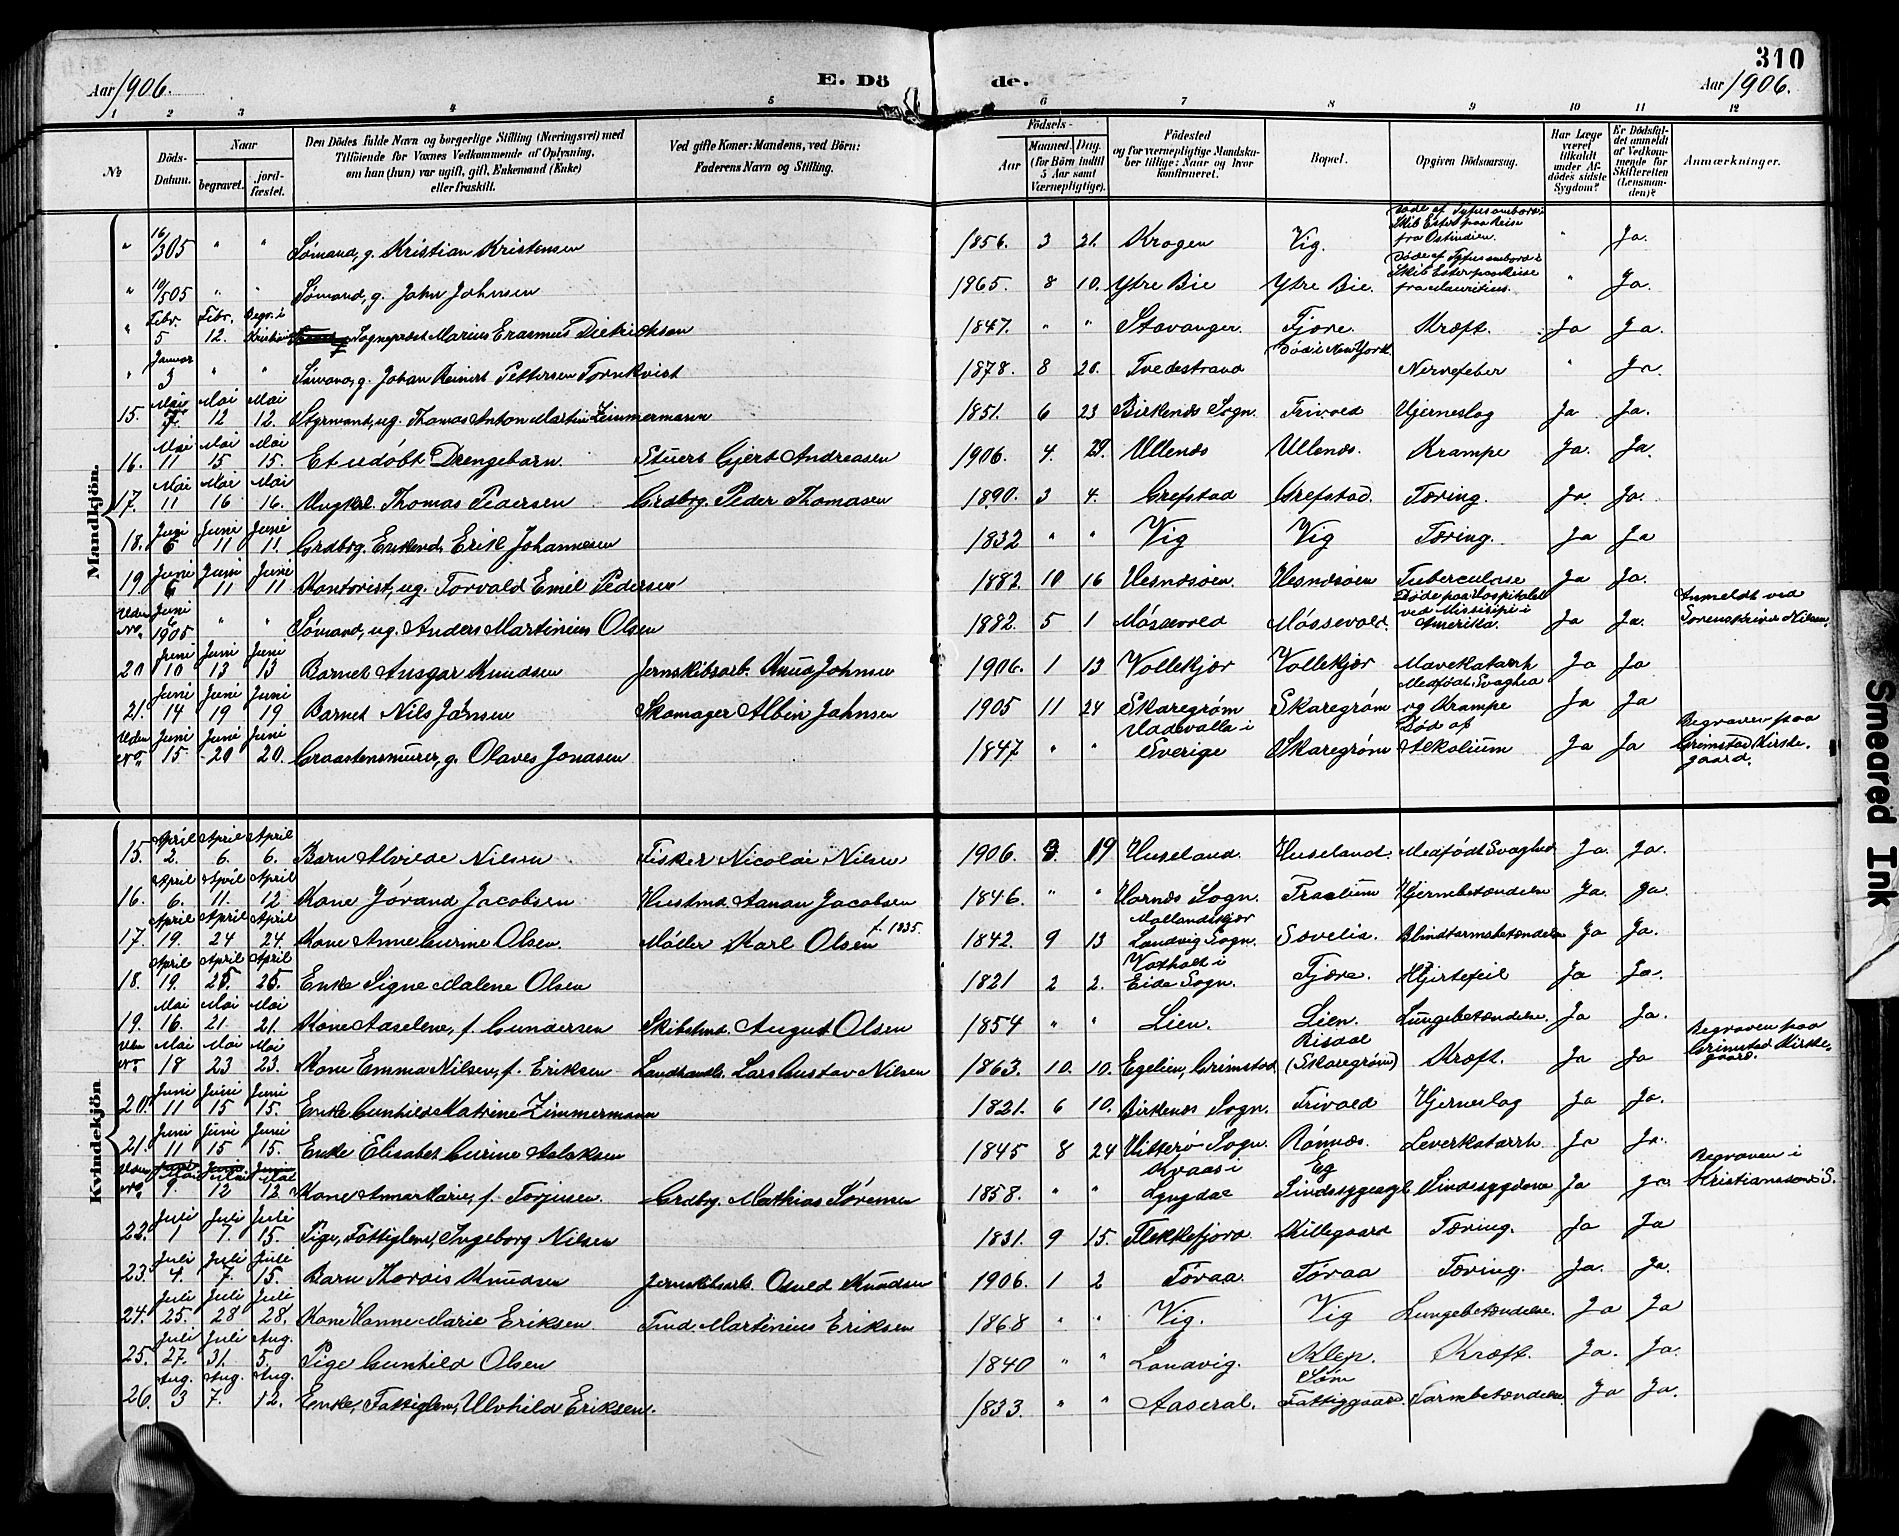 310
Aar 1906. E. Dö de. Aar 1906.
1 2 3 4 5 6 7 8 9 10 11 12
No
Döds-Datum.
Naar
begravet.
jord-fæstet.
Den Dödes fulde Navn og borgerlige Stilling (Næringsvei) med
Tilföiende for Voxnes Vedkommende af Oplysning,
om han (hun) var ugift, gift, Enkemand (Enke)
eller fraskilt.
Ved gifte Koner: Mandens, ved Börn:
Faderens Navn og Stilling.
Födsels-
Aar
Maaned. Dag.
(for Börn indtil
5 Aar samt
Værnepligtige).
Födested
og for værnepligtige Mandska-
ber tillige: Naar og hvor
konfirmeret.
Bopæl.
Opgiven Dödsaarsag.
Har Læge
været
tilkaldt
under Af-
dödes sidste
Sygdom?
Er Dödsfal-
det anmeldt
af Vedkom-
mende for
Skifteretten
(Lensman-
den)?
Anmærkninger.
Mandkjön.
" 16/3 05 " " Sømand, g. Kristian Kristensen 1856. 3 21. Krogen Vig. Døde af Tyfus ombord i Skib Ester paa Reise fra Ostindien. " Ja.
" 19/5 05 " " Sømand, g. John Johnsen 1965. 8 10. Ytre Bie Ytre Bie. Døde af Tyfus ombord i Skib Ester paa Reise fra Mauritius. " Ja.
" Febr. 5 Febr. 12. Begr. i Kristian Sogneprest Marius Erasmus Dietrichson 1847. " " Stavanger. Fjære. Kræft. Ja Ja.
" Januar 3 " " Sømand, g. Johan Reinert Pettersen Tornkvist 1878. 8 20. Tvedestrand Død i New York. Nervefeber " Ja.
15. Mai 7 Mai 12 Mai 12. Styrmand, ug. Thomas Anton Martin Zimmermann 1851. 6 23 Birkenæs Sogn. Trivold Hjerneslag Ja Ja.
16. Mai 11 Mai 15 Mai 15. Et udøbt Drengebarn. Stuert Gjert Andreasen 1906. 4. 29. Ullenæs Ullenæs. Krampe Ja. Ja.
17. Mai 11 Mai 16 Mai 16. Ungkrl. Thomas Pedersen Grdbrg. Peder Thomasen 1890. 3 4. Grefstad Grefstad. Tæring. Ja. Ja.
18. Juni 6 Juni 11 Juni 11. Grdbrg. Enkemd. Erik Johannesen 1832 " " Vig Vig Tæring. Ja Ja
19. Juni 6 Juni 11 Juni 11 Kontorist, ug. Torvald Emil Pedersen 1882. 10 16 Hesnæsøen. Hesnæsøen Tuberculose Ja Ja.
Uden No. Juni 1905 " " Sømand, ug. Anders Martinius Olsen 1882. 5 1 Møssevold Møssevold. Døde paa Hospitalet ved Missisipi i Amerika. Ja Ja. Anmeldt ved Sorenskriver Nilsen.
20 Juni 10 Juni 13 Juni 13 Barnet Ansgar Knudsen Jernskibsarb. Knud Johnsen 1906. 1 13 Vollekjær Vollekjær Mavekatarrh Ja Ja
21. Juni 14 Juni 19 Juni 19 Barnet Nils Jansen Skomager Albin Jahnsen 1905 11 24 Skaregrøm Skaregrøm Medfødt Svaghed og Krampe Ja Ja
Uden No. Juni 15 Juni 20 Juni 20. Graastensmurer, g. Olaves Jonasen 1847 " " Uadevalla i Sverige Skaregrøm Død af Alkolium Ja Ja Begraven paa Grimstad Kirkegaard.
Kvindekjön
15. April 2. April 6. April 6. Barn Alvilde Nilsen Fisker Nicolai Nilsen 1906. 3. 19 Huseland. Huseland. Medfødt Svaghed Ja. Ja.
16. April 6. April 11. April 12 Kone Jørand Jacobsen Hustmd. Aanon Jacobsen 1846. " " Hornæs Sogn. Fraalum Hjernebetændelse Ja. Ja.
17. April 19. April 24 April 24. Kone Anne Gurine Olsen. Møller Karl Olsen f. 1835. 1842. 9 13 Mollandskjær Landvig Sogn. Sævelis. Blindtarmsbetændelse Ja Ja.
18. April 19. April 25. April 25. Enke Signe Malene Olsen 1821 2 2. Voxholt i Eide Sogn. Fjære. Hjertefeil Ja Ja.
19. Mai 16. Mai 21. Mai 21. Kone Aaselene, f. Gundersen Skibstmd. August Olsen 1854 " " Lien. Lien. Lungebetændelse. Ja Ja.
Uden No. Mai 18 Mai 23 Mai 23. Kone Emma Nilsen, f. Eriksen Landhandl. Lars Gustav Nilsen 1863. 10. 10. Egelien, Grimstad Risdal (Skaregrøm) Kræft. Ja Ja Begraven paa Grimstad Kirkegaard.
20. Juni 11 Juni 15 Juni 15. Enke Gunhild Katrine Zimmermann 1821. 6 10. Birkenæs Sogn. Trivold Hjerneslag Ja Ja.
21. Juni 11 Juni 15 Juni 15. Enke Elisabet Gurine Aslaksen 1845 8 24 Hitterø Sogn. Rønnæs. Leverkatarrh. Ja Ja.
Uden No. Mai 9. Mai 12 Mai 12 Kone Anna Marie, f. Torjusen. Grdbrg. Mathias Sørensen 1858. " " Kvaas i Lyngdal Eg Sindssygeasyl Sindssygdom Ja Ja Begraven i Kristianssand S.
22. Juli 1 Juli 7 Juli 15. Pige, Fattiglem, Ingeborg Nilsen 1831. 9 15. Flekkefjord Killegaard Tæring. Ja Ja
23. Juli 4. Juli 7. Juli 15. Barn Thordis Knudsen Jernskibsarb. Osuld Knudsen 1906. 1 2 Tøraa. Tøraa Tæring. Ja. Ja.
24. Juli 25. Juli 28 Juli 28. Kone Hanne Marie Eriksen Tmd. Martinius Eriksen 1868 " " Vig. Vig Lungebetændelse. Ja Ja
25. Juli 27. Juli 31. Aug. 5. Pige Gunhild Olsen 1840 " " Landvig. Klep. Kræft. Ja. Ja.
26. Aug. 3 Aug. 7. Aug. 12. Enke, Fattiglem, Ulvhild Eriksen. 1833. " " Aaseral. Søm Fattiggaard. Tarmbetændelse. Ja Ja.
Smeared Ink